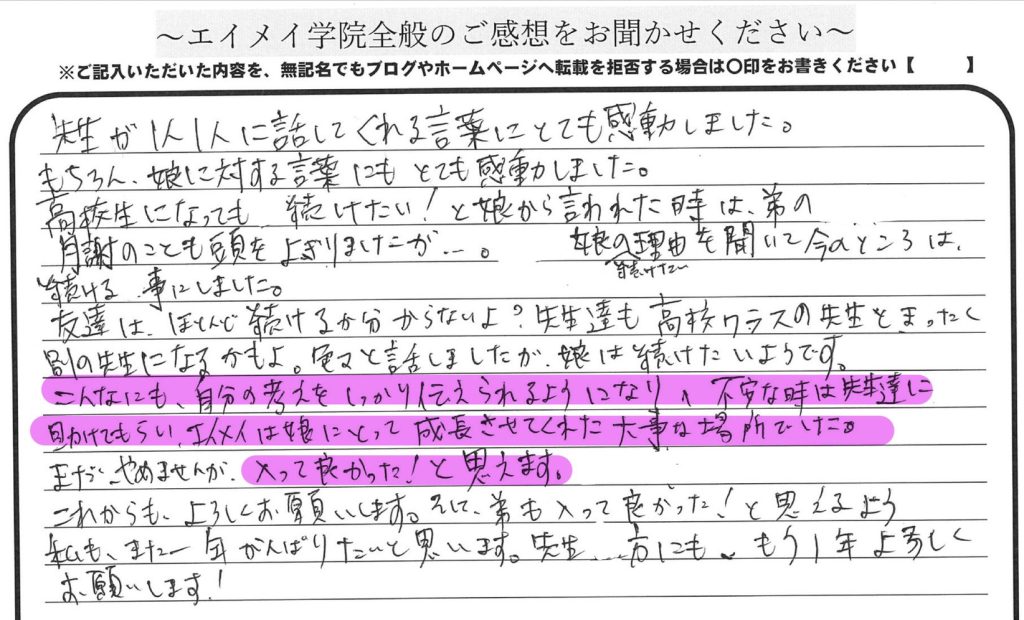 ～エイメイ学院全般のご感想をお聞かせください～
※ご記入いただいた内容を、無記名でもブログやホームページへ転載を拒否する場合は〇印をお書きください【　　】
先生が1人1人に話してくれる言葉にとても感動しました。
もちろん、娘に対する言葉にもとても感動しました。
高校生になっても続けたい！と娘から言われた時は、弟の
月謝のことも頭をよぎりましたが…。娘の理由を聞いて今のところは、
続けたい
続ける事にしました。
友達は、ほとんど続けるか分からないよ？先生達も高校クラスの先生とまったく
別の先生になるかもよ。色々と話しましたが、娘は続けたいようです。
こんなにも、自分の考えをしっかり伝えられるようになり、不安な時は先生達に
助けてもらい、エイメイは娘にとって成長させてくれた大事な場所でした。
まだ、やめませんが、入って良かった！と思えます。
これからも、よろしくお願いします。そして、弟も入って良かった！と思えるよう
私も、また一年がんばりたいと思います。先生方にも、もう1年よろしく
お願いします！